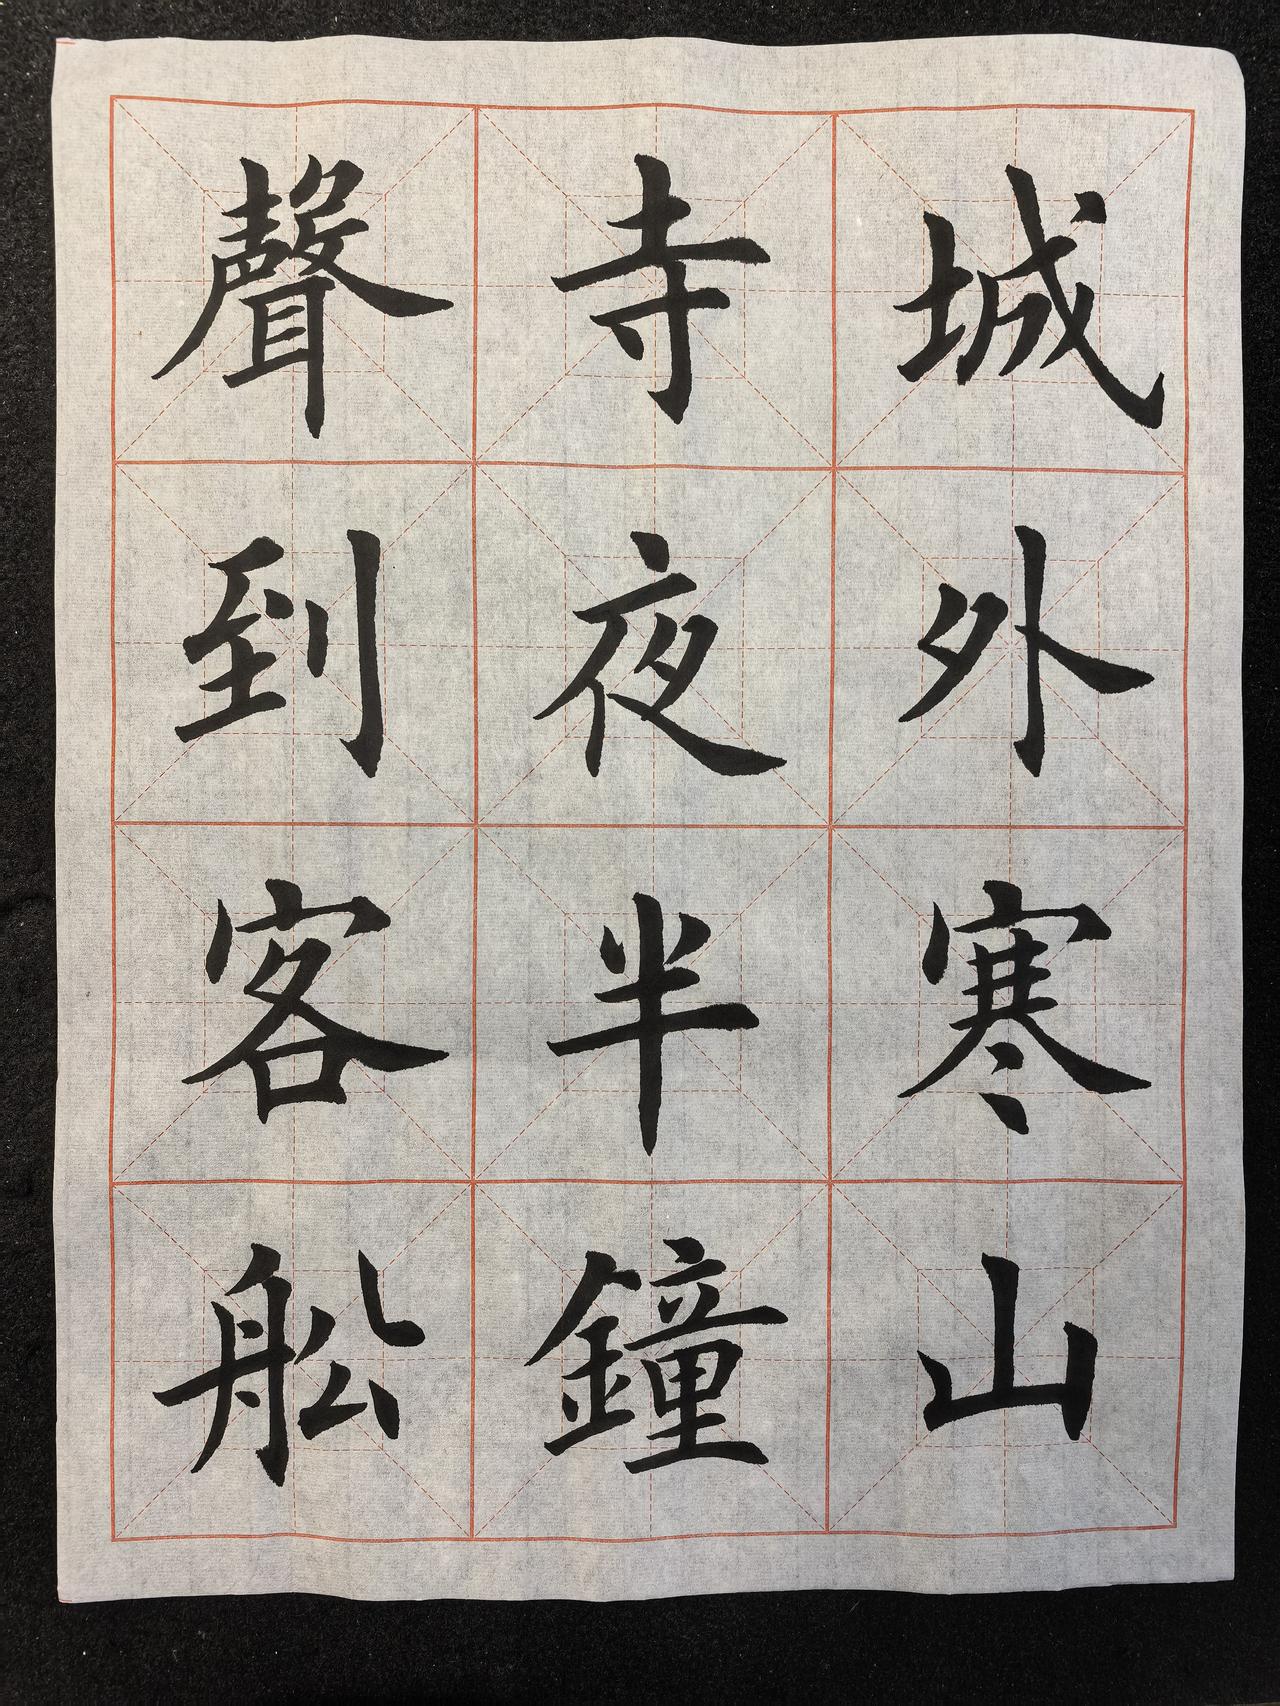 城外寒山
寺夜半鐘
聲到客舩